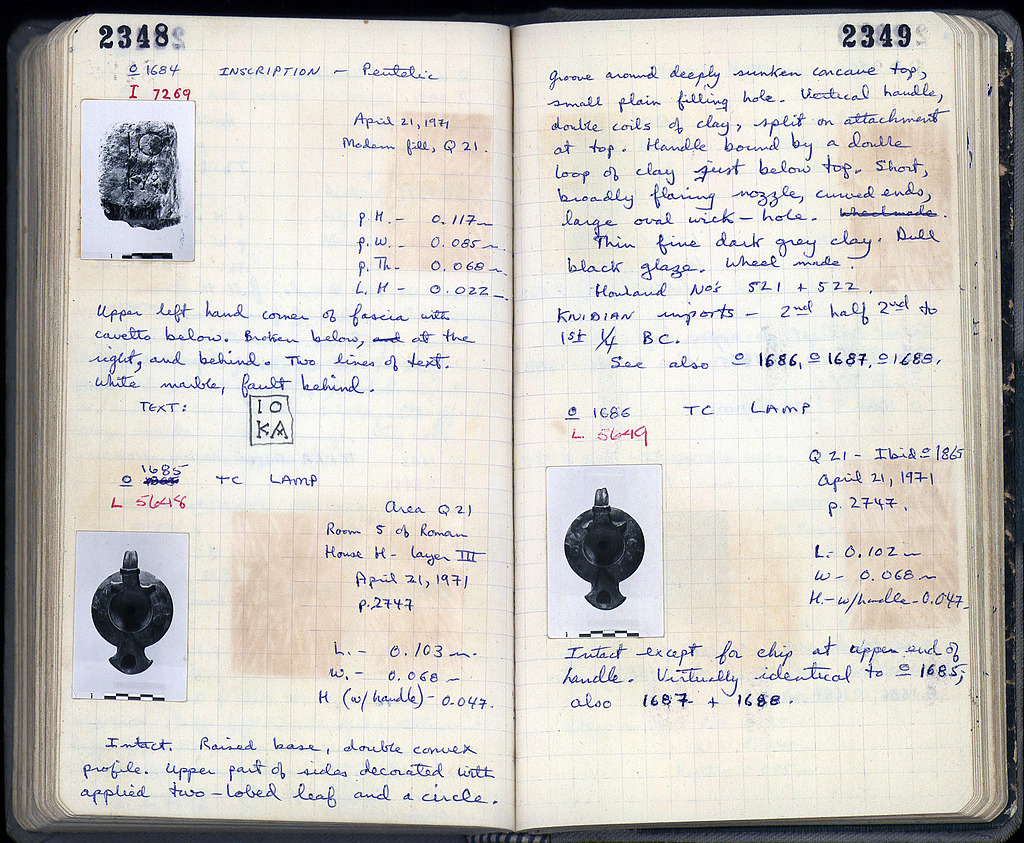 2348
o 1684 INSCRIPTION - Pentelic
I 7269
April 21, 1971
Modern fill, Q 21.
p. H. - 0.117 m
p. W. - 0.085 m.
p. Th - 0.068 m.
L. H - 0.022 m.
Upper left hand corner of fascia with
cavetto below. Broken below, and at the
right, and behind. Two lines of text.
White marble, fault behind.
TEXT: IO
KA
1685
o TC LAMP
L 5648
Area Q 21
Room 5 of Roman
House H - layer III
April 21, 1971
p. 2747
L. - 0.103 m.
W. - 0.068 m
H (w/handle) - 0.047.
Intact. Raised base, double convex
profile. Upper part of sides decorated with
applied two-lobed leaf and a circle.
2349
Groove around deeply sunken concave top,
small plain filling hole. Vertical handle,
double coils of clay, split on attachment
at top. Handle bound by a double
loop of clay just below top. Short,
broadly flaring nozzle, curved ends,
large oval wick-hole. Wheelmade.
Thin fine dark grey clay. Dull
black glaze. Wheel made.
Howland No's 521 + 522.
KNIDIAN imports - 2nd half 2nd to
1st 1/4 BC.
See also o 1686, o 1687, o 1688.
o 1686 TC LAMP
L. 5649
Q 21 - Ibid o 1865
April 21, 1971
p. 2747.
L - 0.102 m
W - 0.068 m
H. - w/handle - 0.047
Intact except for chip at upper end of
handle. Virtually identical to o 1685;
also 1687 + 1688.